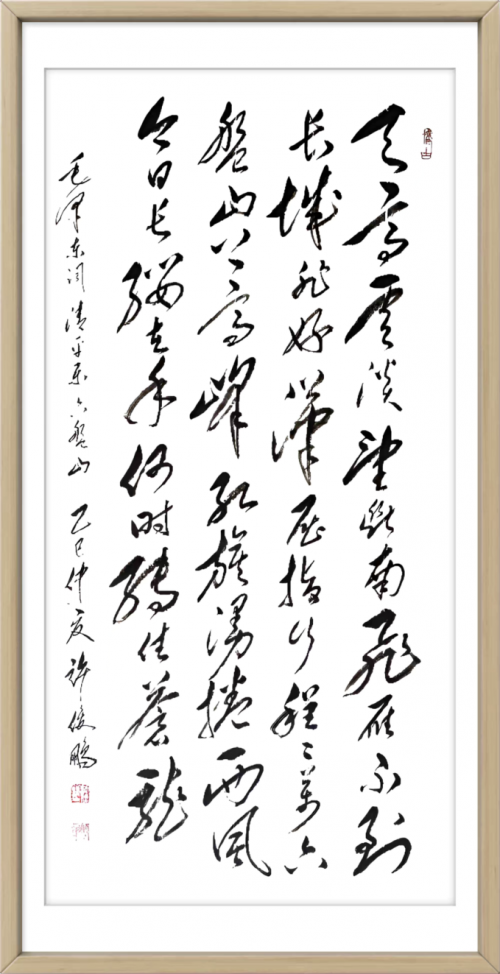 天高雲淡望断南飛雁不到
长城非好漢屈指行程二萬六
盤山上高峰红旗漫捲西風
今日长缨在手何时縛住蒼龍
毛泽东词清平乐六盤山 乙巳仲夏 许俊鹏